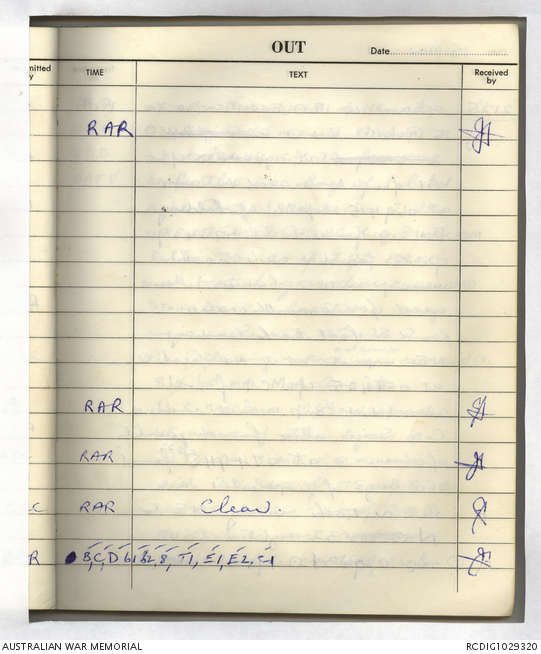 OUT
Date
mitted
y
TIME
TEXT
Received by
RAR
RAR
RAR
C RAR Clear.
R B, C, D 61, 62, 8, T1, E1, E2, C1
AUSTRALIAN WAR MEMORIAL
RCDIG1029320